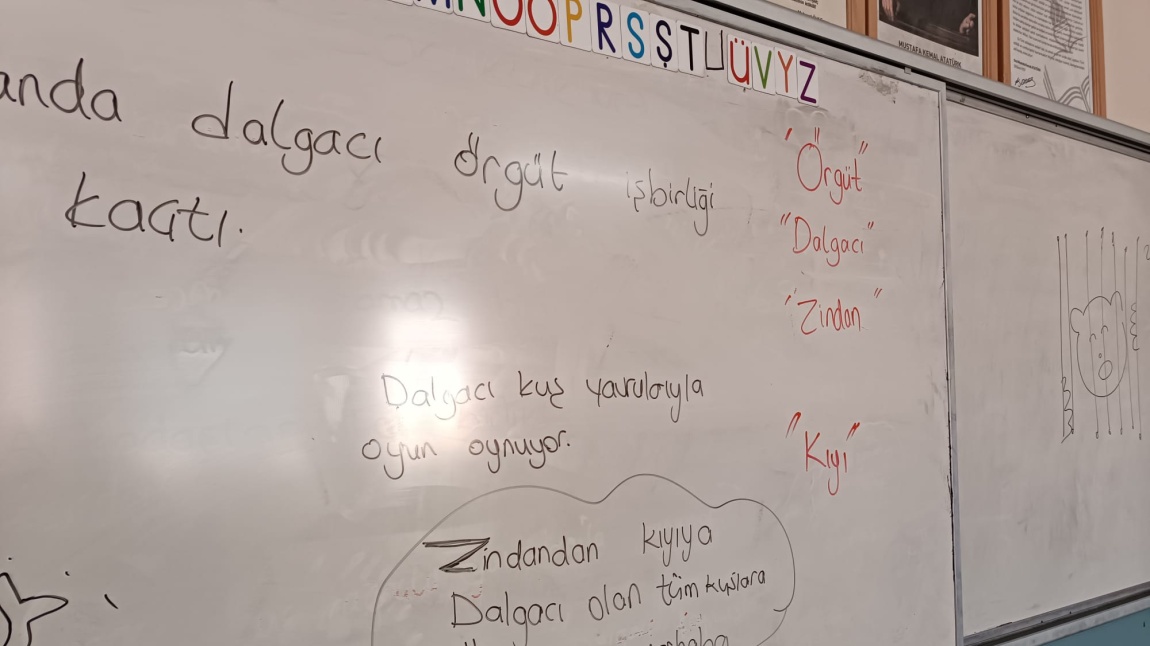 N O Ö P R S Ş T U Ü V Y Z
MUSTAFA KEMAL ATATÜRK
anda dalgacı örgüt işbirliği
kaçtı.
"Örgüt"
"Dalgacı"
"Zindan"
"Kıyı"
Dalgacı kuş yavrularıyla
oyun oynuyor.
Zindandan kıyıya
Dalgacı olan tüm kuşlara